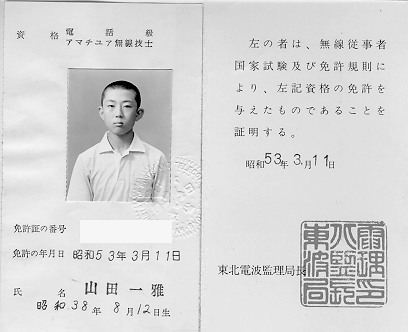 資格 電話級
アマチュア無線技士
免許証の番号
免許の年月日 昭和53年3月11日
氏名 山田一雅
昭和38年8月12日生
左の者は、無線従事者
国家試験及び免許規則に
より、左記資格の免許を
与えたものであることを
証明する。
昭和53年3月11日
東北電波監理局長